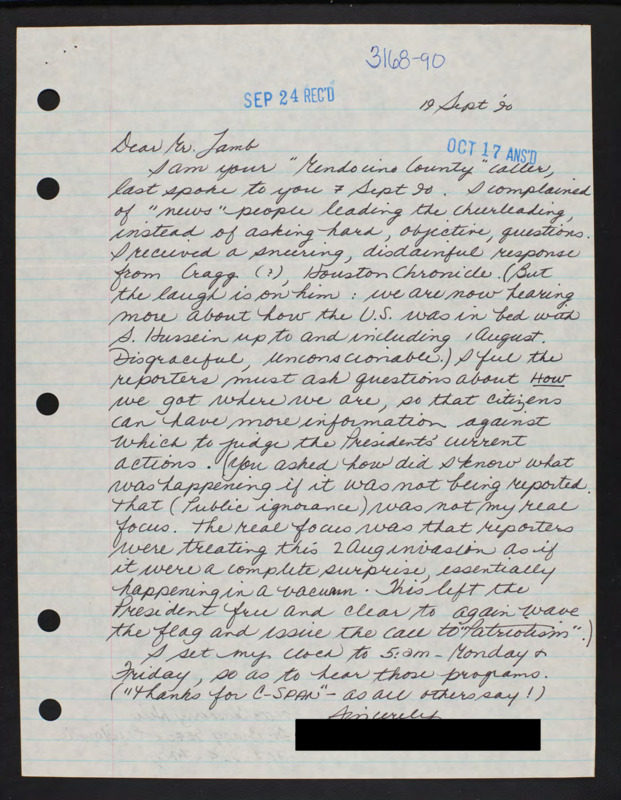 3168-90
SEP 24 REC'D
19 Sept '90
Dear Mr. Lamb
OCT 17 ANS'D
I am your "Mendocino County" caller,
last spoke to you 7 Sept 90. I complained
of "news" people leading the cheerleading,
instead of asking hard, objective, questions.
I received a sneering, disdainful response
from Cragg (?), Houston Chronicle. (But
the laugh is on him: we are now hearing
more about how the U.S. was in bed with
S. Hussein up to and including 1 August.
Disgraceful, unconscionable.) I feel the
reporters must ask questions about How
we got where we are, so that citizens
can have more information against
which to judge the Presidents' current
actions. (You asked how did I know what
was happening if it was not being reported.
That (Public ignorance) was not my real
focus. The real focus was that reporters
were treating this 2 Aug invasion as if
it were a complete surprise, essentially
happening in a vacuum. This left the
President free and clear to again wave
the flag and issue the call to "Patriotism".)
I set my clock to 5:am - Monday &
Friday, so as to hear those programs.
("Thanks for C-SPAN" - as all others say!)
Sincerely